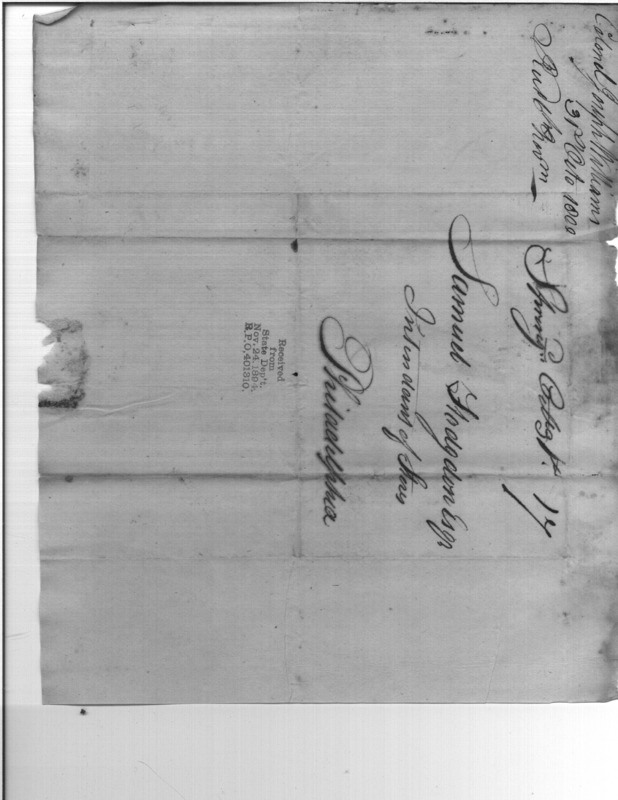 Colonel Joseph Williams
31st Octo 1800
17
Samuel Hodgdon Esqr
Intendant of Stores
Philadelphia
Received
from
State Dep't.
Nov. 24. 1894.
R.P.O. 401310.